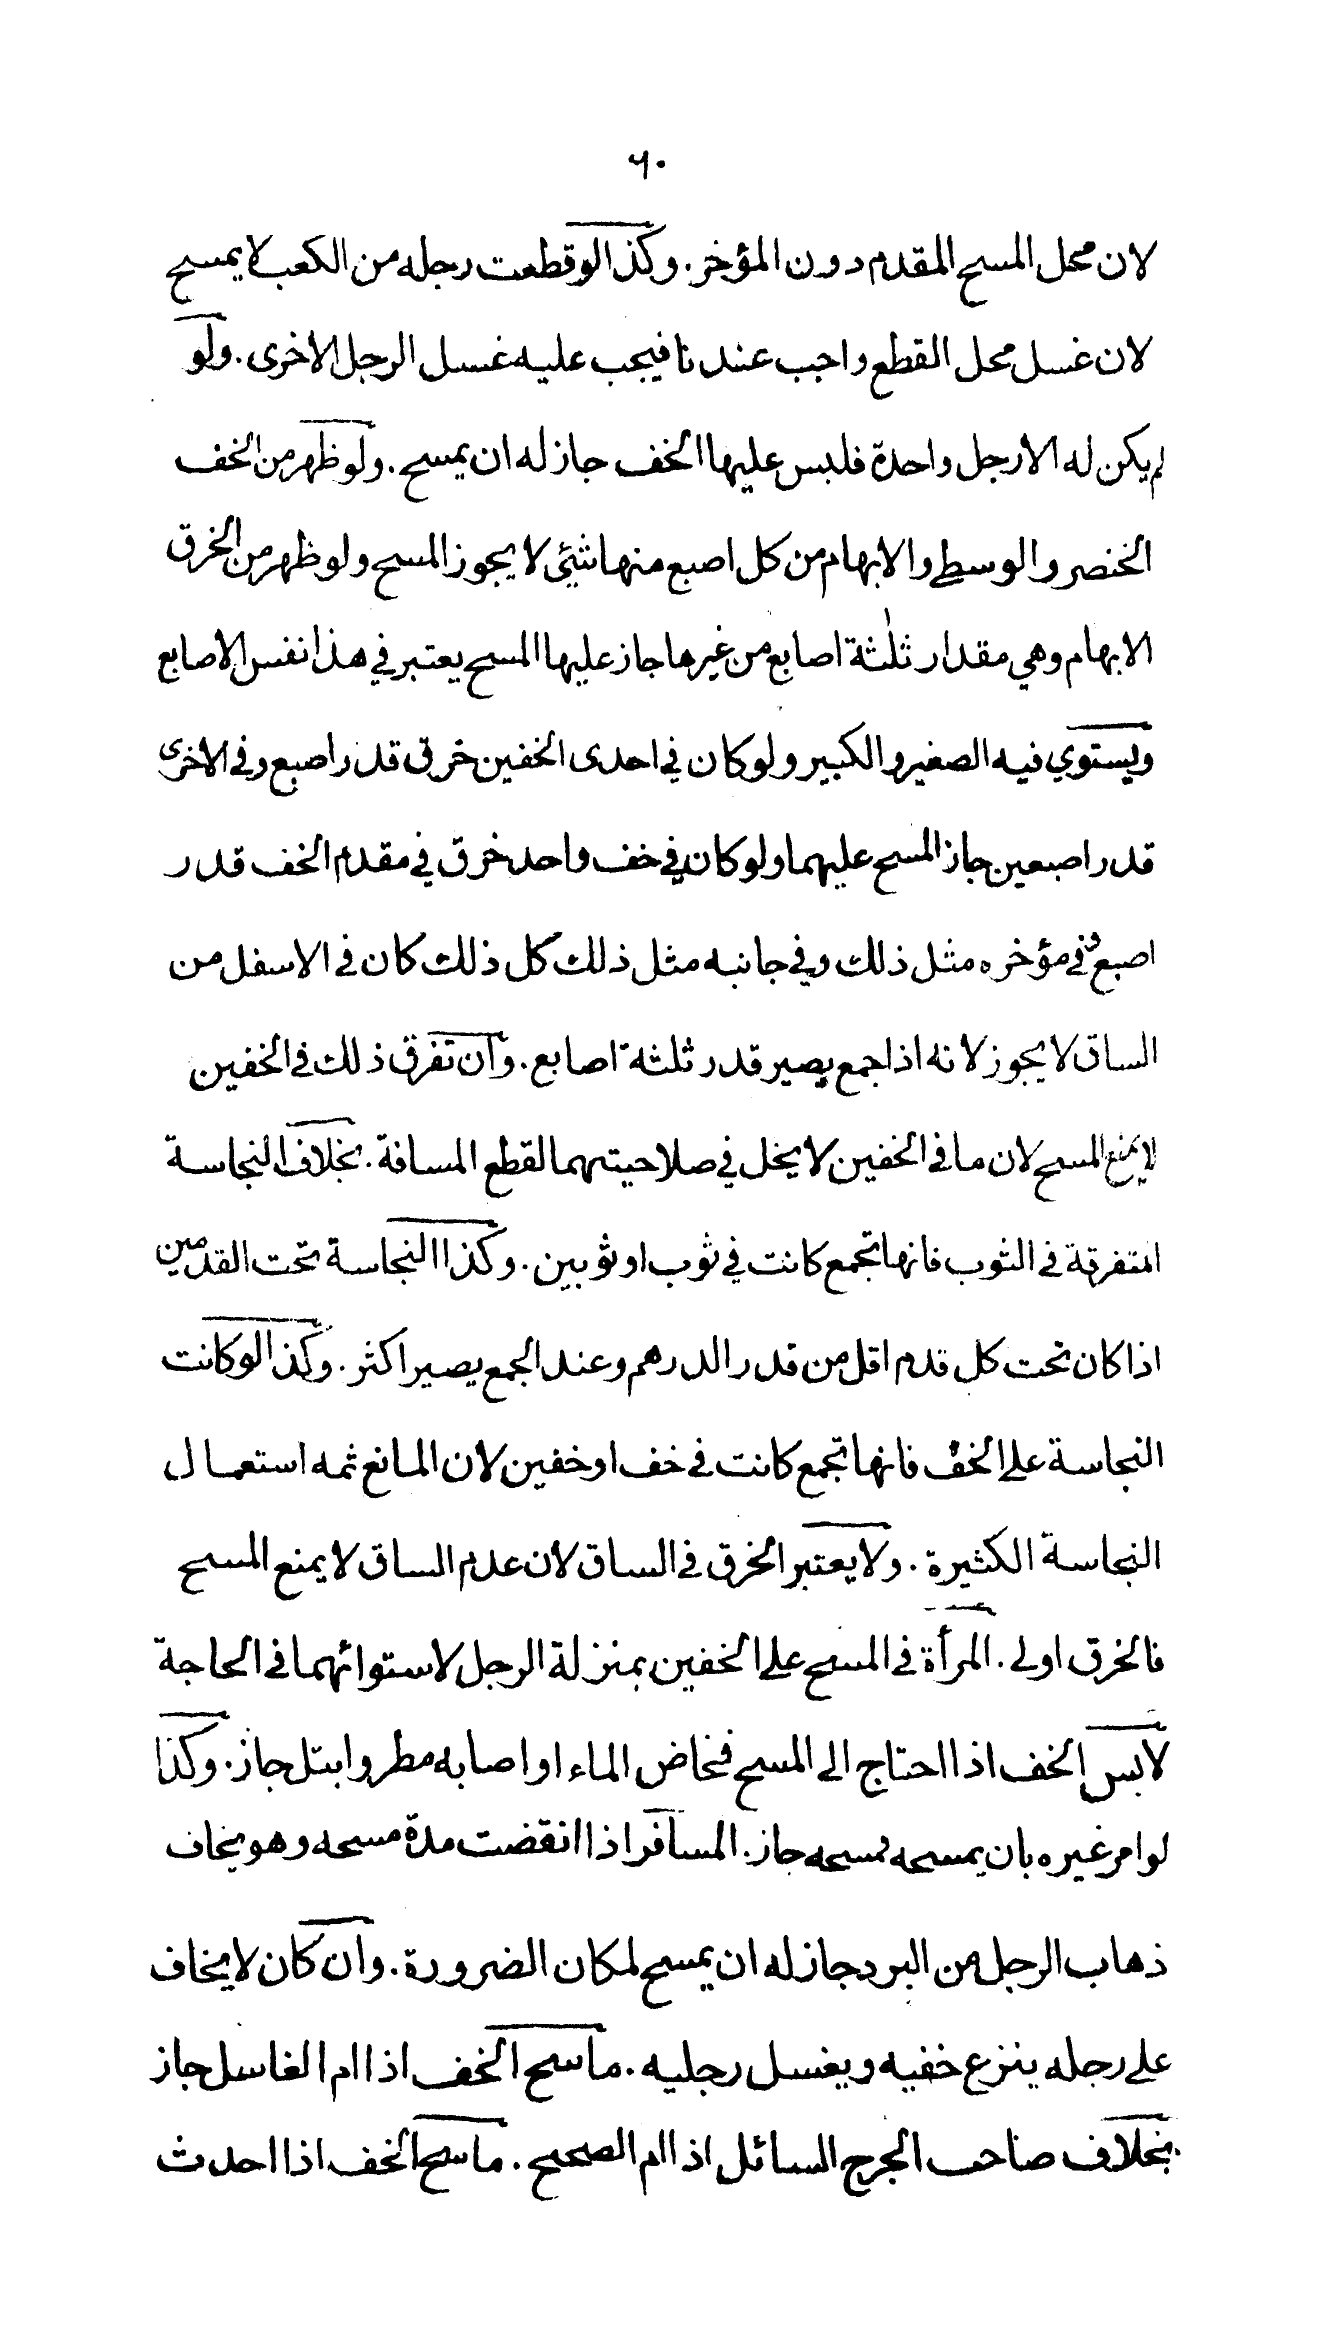 ٦٠
لان محل المسح المقدم دون المؤخر. وكذا لو قطعت رجله من الكعب لا يمسح
لان غسل محل القطع واجب عندنا فيجب عليه غسل الرجل الاخرى. ولو
لم يكن له الا رجل واحدة فلبس عليها الخف جاز له ان يمسح. ولو ظهر من الخف
الخنصر والوسطى والابهام من كل اصبع منها شيئ لا يجوز المسح ولو ظهر من الخرق
الابهام وهي مقدار ثلثة اصابع من غيرها جاز عليها المسح يعتبر في هذا نفس الاصابع
ويستوي فيه الصغير والكبير ولو كان في احدى الخفين خرق قدر اصبع وفي الاخرى
قدر اصبعين جاز المسح عليهما ولو كان في خف واحد خرق في مقدم الخف قدر
اصبع وفي مؤخره مثل ذلك وفي جانبه مثل ذلك كل ذلك كان في الاسفل من
الساق لا يجوز لانه اذا جمع يصير قدر ثلثة اصابع. وان تفرق ذلك في الخفين
لا يمنع المسح لان ما في الخفين لا يخل في صلاحيتهما لقطع المسافة. بخلاف النجاسة
المتفرقة في الثوب فانها تجمع كانت في ثوب او ثوبين. وكذا النجاسة تحت القدمين
اذا كان تحت كل قدم اقل من قدر الدرهم وعند الجمع يصير اكثر. وكذا لو كانت
النجاسة على الخف فانها تجمع كانت في خف او خفين لان المانع ثمه استعمال
النجاسة الكثيرة. ولا يعتبر الخرق في الساق لان عدم الساق لا يمنع المسح
فالخرق اولى. المرأة في المسح على الخفين بمنزلة الرجل لاستوائهما في الحاجة
لابس الخف اذا احتاج الى المسح فخاض الماء او اصابه مطر وابتل جاز. وكذا
لو امر غيره بان يمسحه فمسحه جاز. المسافر اذا انقضت مدة مسحه وهو يخاف
ذهاب الرجل من البرد جاز له ان يمسح لمكان الضرورة. وان كان لا يخاف
على رجله ينزع خفيه ويغسل رجليه. ماسح الخف اذا ام الغاسل جاز
بخلاف صاحب الجرح السائل اذا ام الصحيح. ماسح الخف اذا احدث